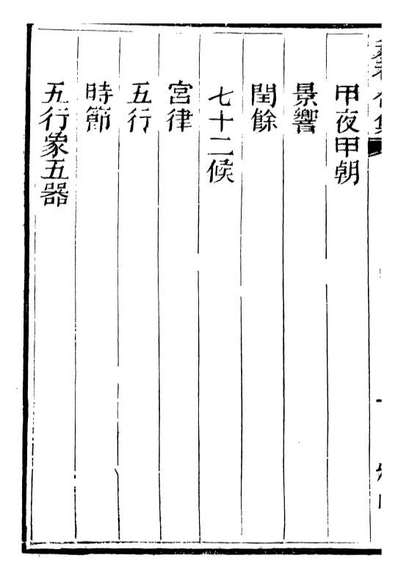 甲夜甲朝
景響
閏餘
七十二候
宮律
五行
時節
五行象五器